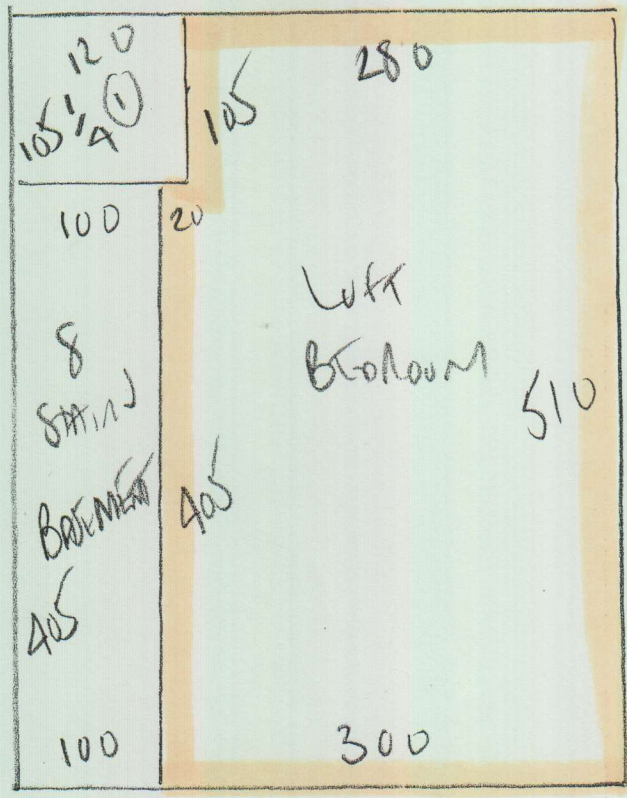 120
105 1/4 1
105
280
100
20
LOFT
BEDROOM
8
STAIRS
BASEMENT
405
405
510
100
300